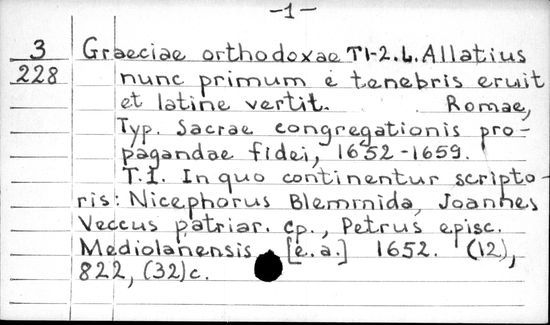 -1-
3 Graeciae orthodoxae T1-2. L. Allatius
228 nunc primum e tenebris eruit
et latine vertit. Romae,
Typ. Sacrae congregationis pro-
pagandae fidei, 1652-1659.
T.I. In quo continentur scripto-
ris: Nicephorus Blemmida, Joannes
Veccus patriar. cp., Petrus episc.
Mediolanensis [e.a.] 1652. (12),
822, (32)c.